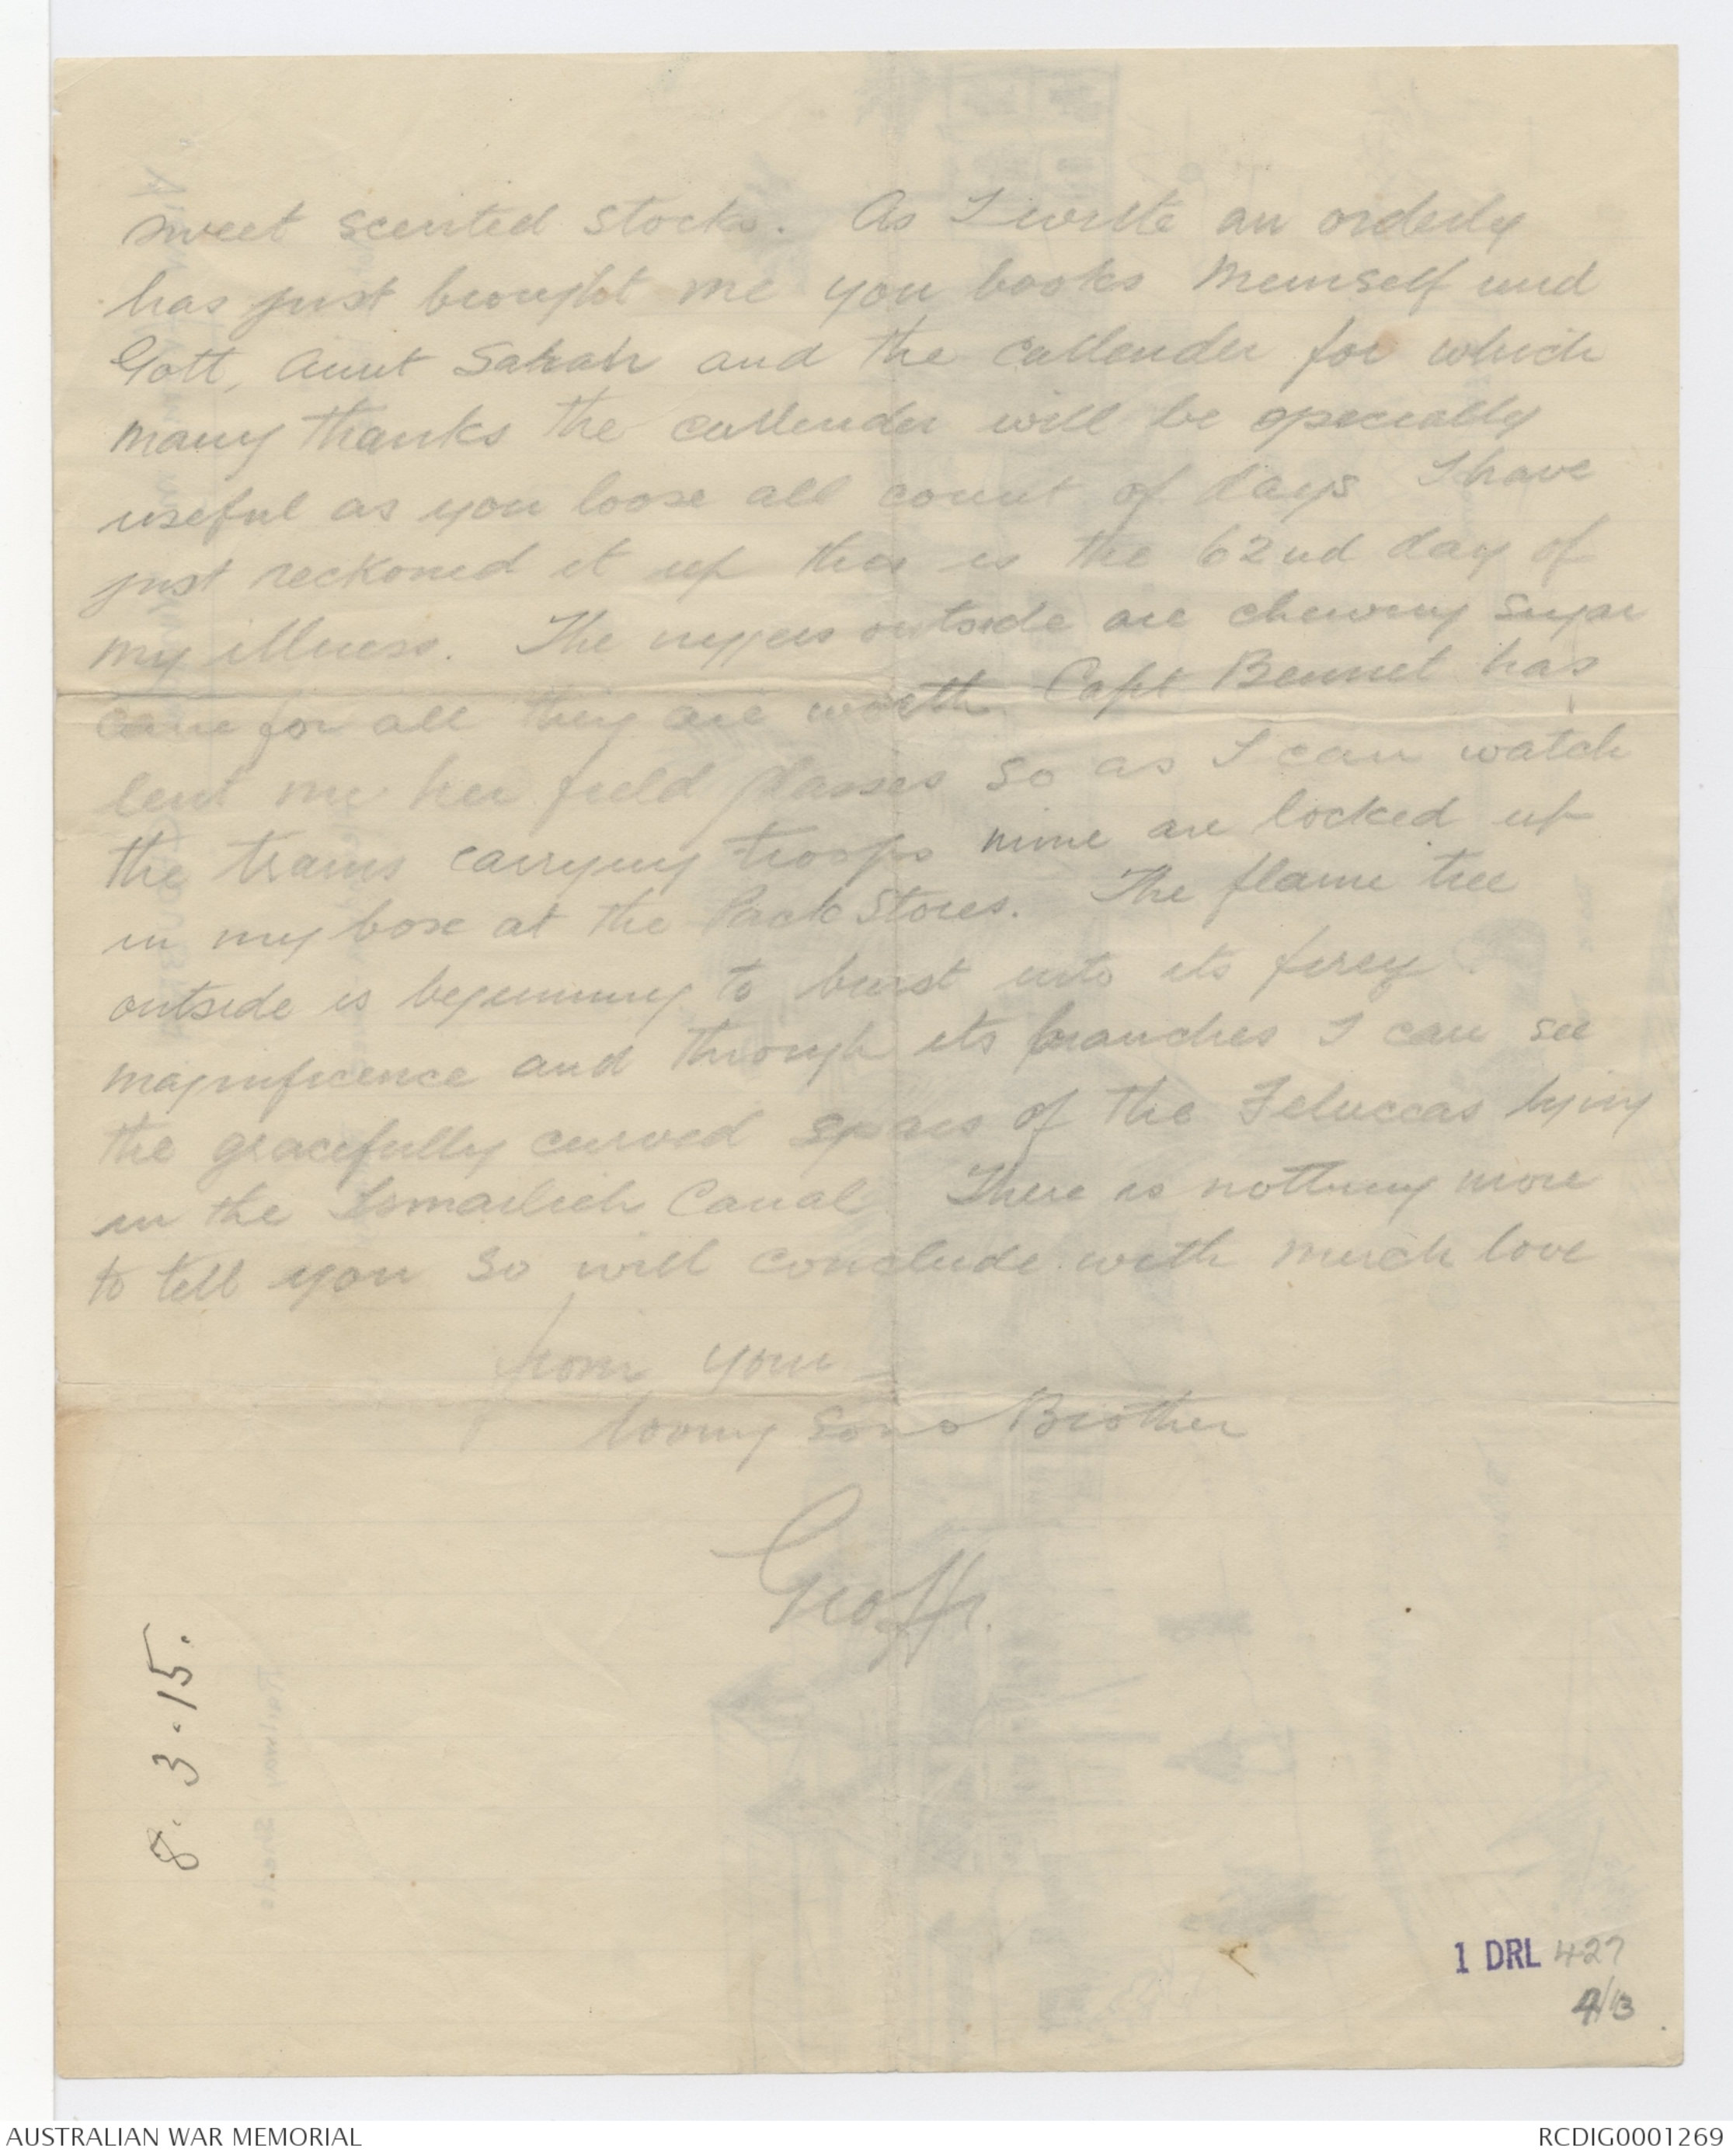 sweet scented stocks. As I write an orderly
has just brought me you books Meinself und
Gott, Aunt Sarah and the callender for which
many thanks the callender will be specially
useful as you loose all count of days I have
just reckoned it up this is the 62nd day of
my illness. The niggers outside are chewing sugar
cane for all they are worth. Capt Bennet has
lent me her field glasses so as I can watch
the trains carrying troops mine are locked up
in my box at the Pack Stores. The flame tree
outside is beginning to burst into its firey
magnificence and through its branches I can see
the gracefully curved spars of the Feluccas lying
in the Ismailieh Canal. There is nothing more
to tell you so will conclude with much love
from your
loving son & Brother
Geoff.
8.3.15.
1 DRL 427
4/13
AUSTRALIAN WAR MEMORIAL
RCDIG0001269